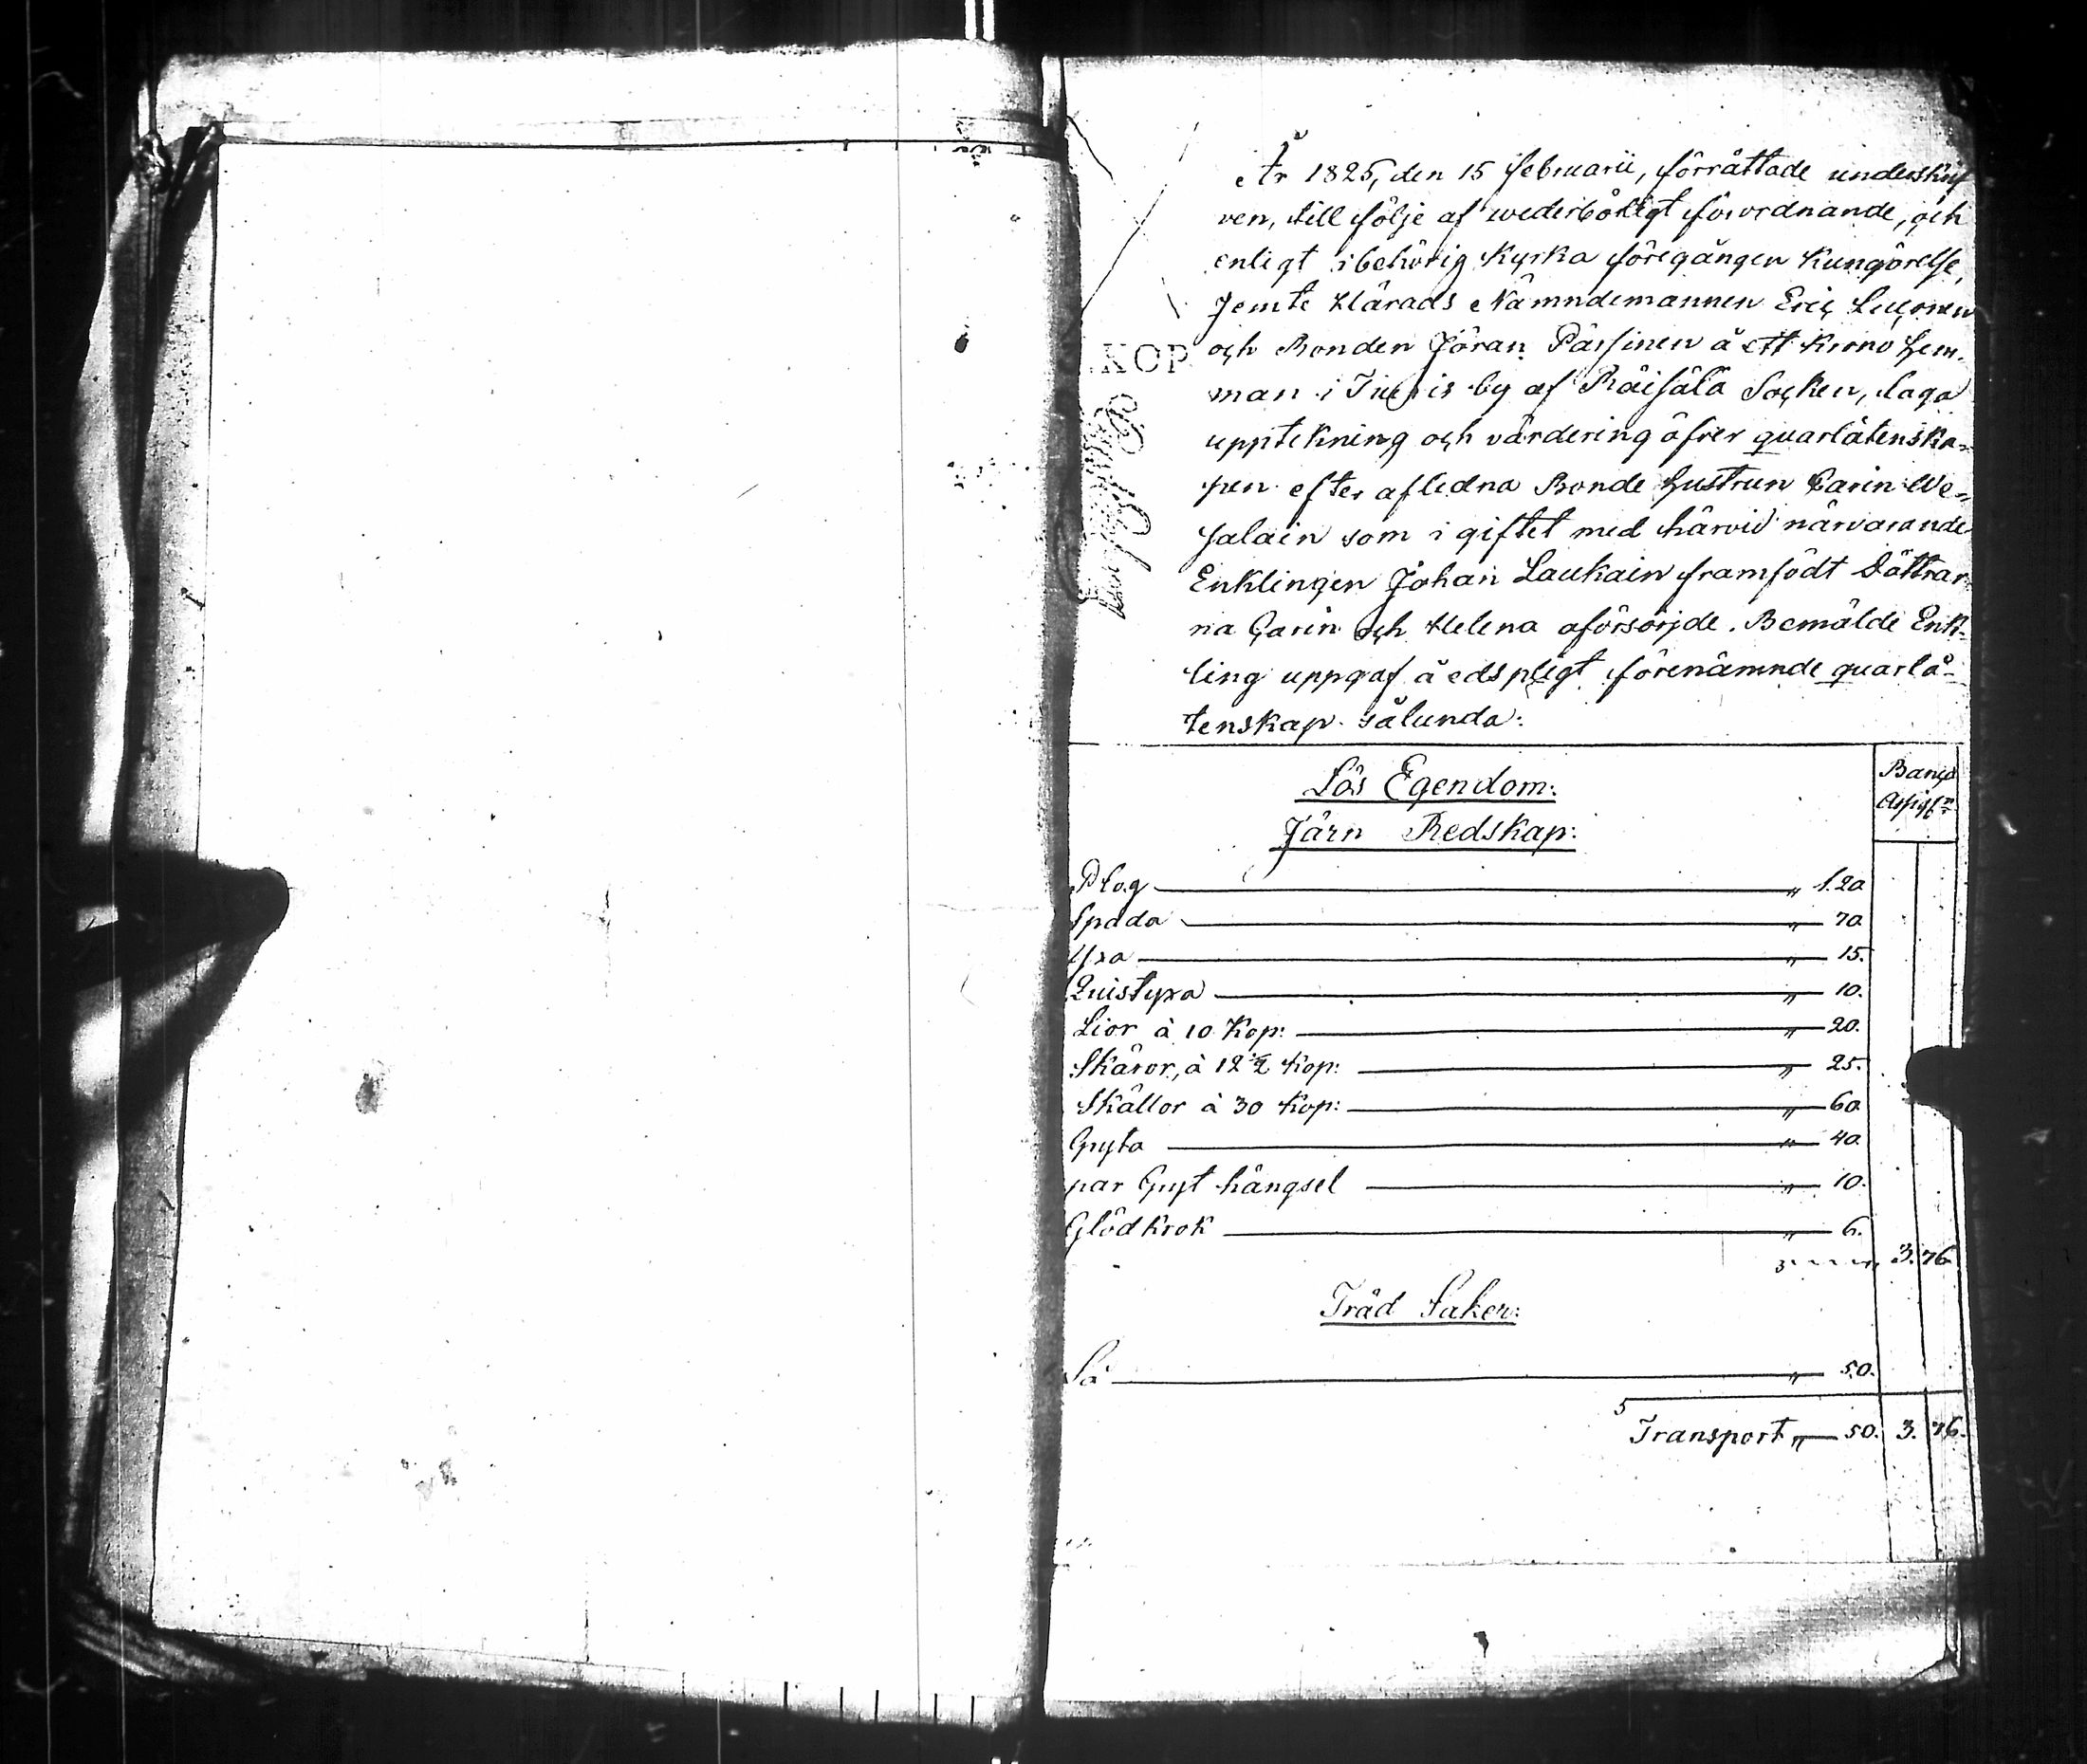 År 1825, den 15 februarii, förrättade underskrif
ven, till följe af wederbörligt förordnande, och
enligt i behörig Kyrka föregången Kungörelse,
Jemte Härads Nämndemannen Eric
och Bonden Jöran Pärssinen å ett krono Hem-
KOP
man i by af Räisälä Socken, laga
uppteckning och värdering öfver quarlåtenska-
pen efter aflidna Bonde Hustrun Carin We-
salain som i giftet med härvid närvarande
Enklingen Johan Laukain framfödt Döttrar
na Carin och Helena oförsörjde. Bemälde Enk-
ling uppgaf å edspligt förenämnde quarlå-
tenskap sålunda:
Lös Egendom: Banco
Järn Redskap: Assign
Plog " 1.20
Spada " 70
Yxa " 15.
Quistyxa " 10.
Lior à 10 Kop: " 20.
Skäror, à 12 1/2 Kop: " 25.
Skällor à 30 Kop: " 60
Gryta " 40
par Gryt hängsel " 10.
Glödkrok " 6.
3. 76
Träd Saker:
Så " 50.
Transport " 50. 3. 76.